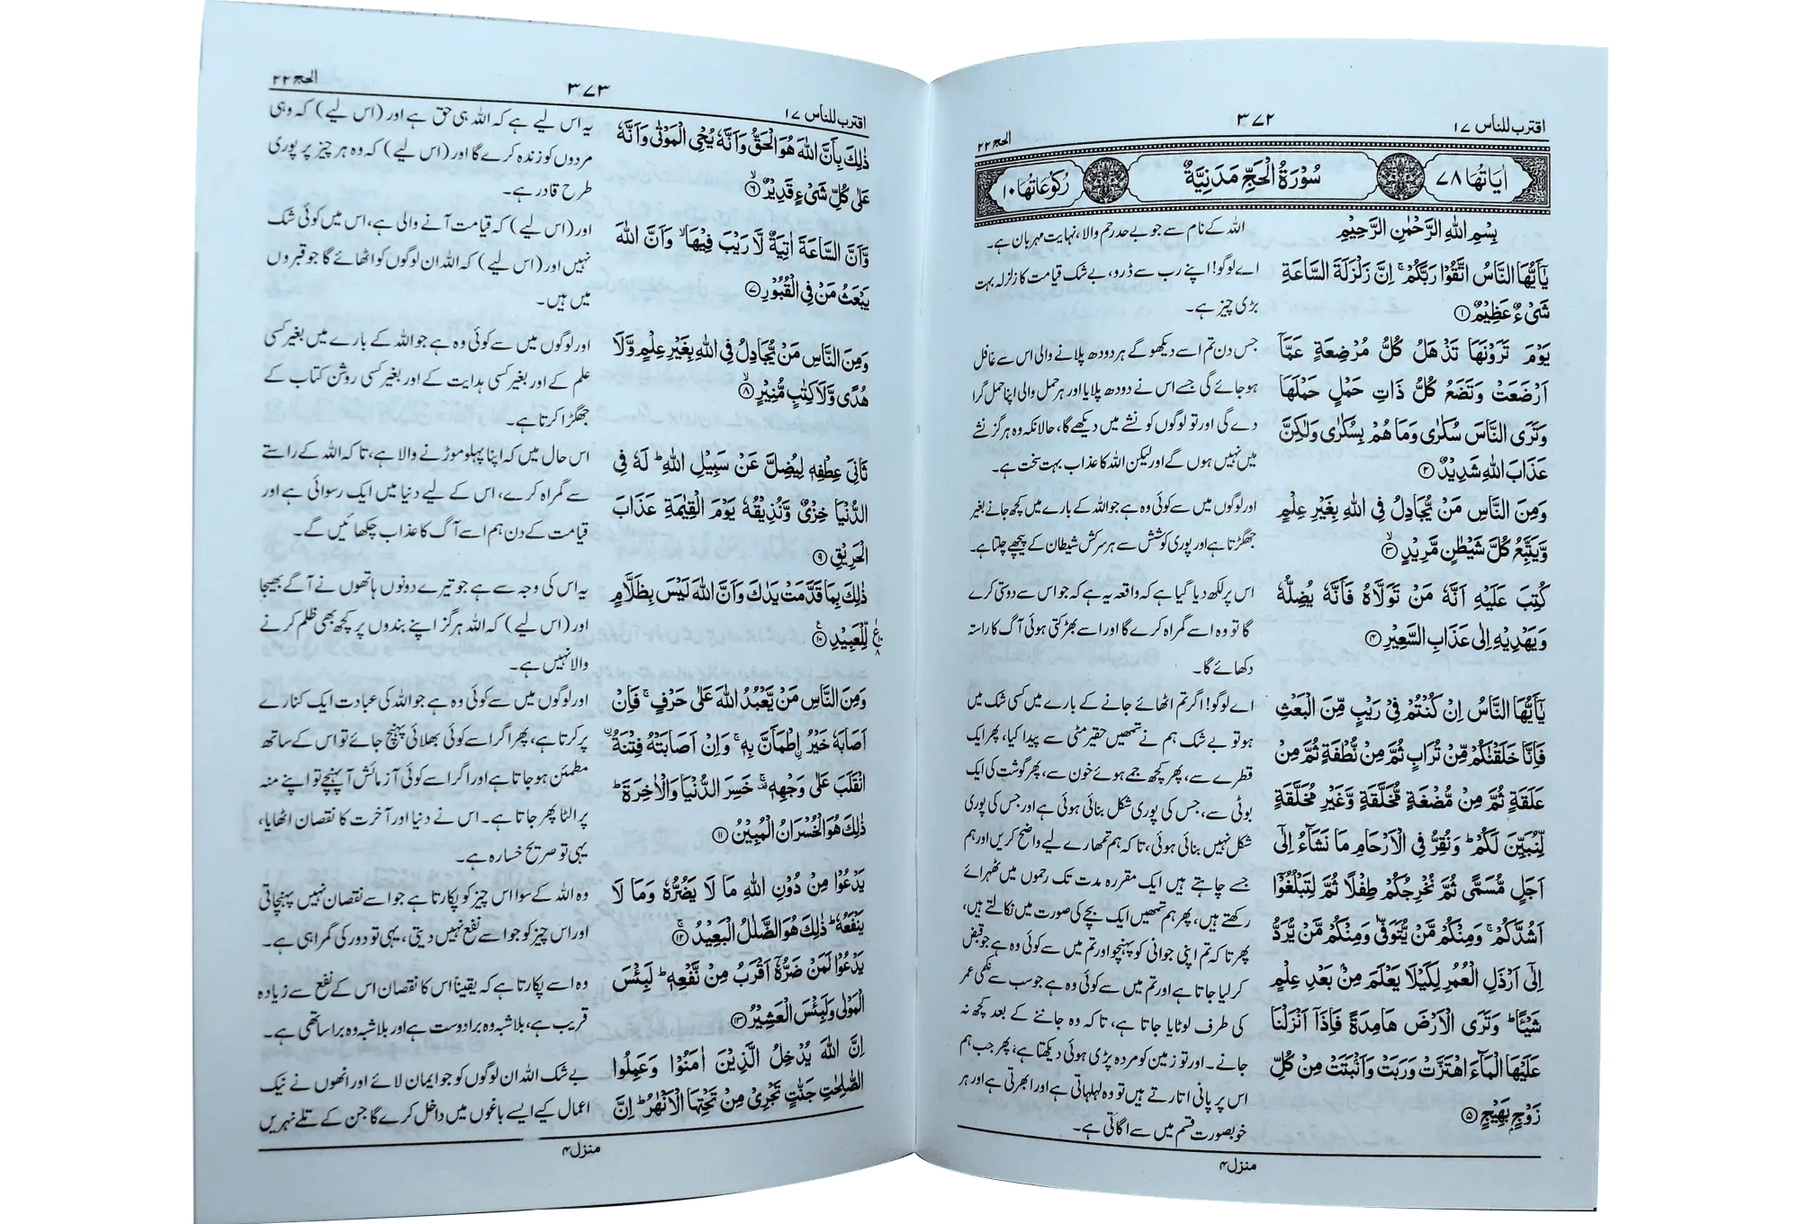 اقترب للناس ۱۷
۳۷۲
الحج ۲۲
اٰیَاتُهَا ۷۸
سُوْرَةُ الْحَجِّ مَدَنِیَّةٌ
رُكُوْعَاتُهَا ۱۰
بِسْمِ اللّٰهِ الرَّحْمٰنِ الرَّحِیْمِ
یٰۤاَیُّهَا النَّاسُ اتَّقُوْا رَبَّكُمْ ۚ اِنَّ زَلْزَلَةَ السَّاعَةِ
شَیْءٌ عَظِیْمٌ ۝۱
یَوْمَ تَرَوْنَهَا تَذْهَلُ كُلُّ مُرْضِعَةٍ عَمَّاۤ
اَرْضَعَتْ وَتَضَعُ كُلُّ ذَاتِ حَمْلٍ حَمْلَهَا
وَتَرَی النَّاسَ سُكٰرٰی وَمَا هُمْ بِسُكٰرٰی وَلٰكِنَّ
عَذَابَ اللّٰهِ شَدِیْدٌ ۝۲
وَمِنَ النَّاسِ مَنْ یُّجَادِلُ فِی اللّٰهِ بِغَیْرِ عِلْمٍ
وَّیَتَّبِعُ كُلَّ شَیْطٰنٍ مَّرِیْدٍ ۝۳
كُتِبَ عَلَیْهِ اَنَّهٗ مَنْ تَوَلَّاهُ فَاَنَّهٗ یُضِلُّهٗ
وَیَهْدِیْهِ اِلٰی عَذَابِ السَّعِیْرِ ۝۴
یٰۤاَیُّهَا النَّاسُ اِنْ كُنْتُمْ فِیْ رَیْبٍ مِّنَ الْبَعْثِ
فَاِنَّا خَلَقْنٰكُمْ مِّنْ تُرَابٍ ثُمَّ مِنْ نُّطْفَةٍ ثُمَّ مِنْ
عَلَقَةٍ ثُمَّ مِنْ مُّضْغَةٍ مُّخَلَّقَةٍ وَّغَیْرِ مُخَلَّقَةٍ
لِّنُبَیِّنَ لَكُمْ ؕ وَنُقِرُّ فِی الْاَرْحَامِ مَا نَشَآءُ اِلٰۤی
اَجَلٍ مُّسَمًّی ثُمَّ نُخْرِجُكُمْ طِفْلًا ثُمَّ لِتَبْلُغُوْۤا
اَشُدَّكُمْ ۚ وَمِنْكُمْ مَّنْ یُّتَوَفّٰی وَمِنْكُمْ مَّنْ یُّرَدُّ
اِلٰۤی اَرْذَلِ الْعُمُرِ لِكَیْلَا یَعْلَمَ مِنْۢ بَعْدِ عِلْمٍ
شَیْـًٔا ؕ وَتَرَی الْاَرْضَ هَامِدَةً فَاِذَاۤ اَنْزَلْنَا
عَلَیْهَا الْمَآءَ اهْتَزَّتْ وَرَبَتْ وَاَنْۢبَتَتْ مِنْ كُلِّ
زَوْجٍۭ بَهِیْجٍ ۝۵
اللہ کے نام سے جو بے حد رحم والا، نہایت مہربان ہے۔
اے لوگو! اپنے رب سے ڈرو، بے شک قیامت کا زلزلہ بہت
بڑی چیز ہے۔
جس دن تم اسے دیکھو گے ہر دودھ پلانے والی اس سے غافل
ہو جائے گی جسے اس نے دودھ پلایا اور ہر حمل والی اپنا حمل گرا
دے گی اور تو لوگوں کو نشے میں دیکھے گا، حالانکہ وہ ہرگز نشے
میں نہیں ہوں گے اور لیکن اللہ کا عذاب بہت سخت ہے۔
اور لوگوں میں سے کوئی وہ ہے جو اللہ کے بارے میں کچھ جانے بغیر
جھگڑتا ہے اور پوری کوشش سے ہر سرکش شیطان کے پیچھے چلتا ہے۔
اس پر لکھ دیا گیا ہے کہ واقعہ یہ ہے کہ جو اس سے دوستی کرے
گا تو وہ اسے گمراہ کرے گا اور اسے بھڑکتی ہوئی آگ کا راستہ
دکھائے گا۔
اے لوگو! اگر تم اٹھائے جانے کے بارے میں کسی شک میں
ہو تو بے شک ہم نے تمھیں حقیر مٹی سے پیدا کیا، پھر ایک
قطرے سے، پھر کچھ جمے ہوئے خون سے، پھر گوشت کی ایک
بوٹی سے، جس کی پوری شکل بنائی ہوئی ہے اور جس کی پوری
شکل نہیں بنائی ہوئی، تاکہ ہم تمھارے لیے واضح کریں اور ہم
جسے چاہتے ہیں ایک مقررہ مدت تک رحموں میں ٹھہرائے
رکھتے ہیں، پھر ہم تمھیں ایک بچے کی صورت میں نکالتے ہیں،
پھر تاکہ تم اپنی جوانی کو پہنچو اور تم میں سے کوئی وہ ہے جو قبض
کر لیا جاتا ہے اور تم میں سے کوئی وہ ہے جو سب سے نکمی عمر
کی طرف لوٹایا جاتا ہے، تاکہ وہ جاننے کے بعد کچھ نہ
جانے۔ اور تو زمین کو مردہ پڑی ہوئی دیکھتا ہے، پھر جب ہم
اس پر پانی اتارتے ہیں تو وہ لہلہاتی ہے اور ابھرتی ہے اور ہر
خوبصورت قسم میں سے اگاتی ہے۔
منزل ۴
اقترب للناس ۱۷
۳۷۳
الحج ۲۲
ذٰلِكَ بِاَنَّ اللّٰهَ هُوَ الْحَقُّ وَاَنَّهٗ یُحْیِ الْمَوْتٰی وَاَنَّهٗ
عَلٰی كُلِّ شَیْءٍ قَدِیْرٌ ۝۶
وَّاَنَّ السَّاعَةَ اٰتِیَةٌ لَّا رَیْبَ فِیْهَا ۙ وَاَنَّ اللّٰهَ
یَبْعَثُ مَنْ فِی الْقُبُوْرِ ۝۷
وَمِنَ النَّاسِ مَنْ یُّجَادِلُ فِی اللّٰهِ بِغَیْرِ عِلْمٍ وَّلَا
هُدًی وَّلَا كِتٰبٍ مُّنِیْرٍ ۝۸
ثَانِیَ عِطْفِهٖ لِیُضِلَّ عَنْ سَبِیْلِ اللّٰهِ ؕ لَهٗ فِی
الدُّنْیَا خِزْیٌ وَّنُذِیْقُهٗ یَوْمَ الْقِیٰمَةِ عَذَابَ
الْحَرِیْقِ ۝۹
ذٰلِكَ بِمَا قَدَّمَتْ یَدٰكَ وَاَنَّ اللّٰهَ لَیْسَ بِظَلَّامٍ
لِّلْعَبِیْدِ ۝۱۰
وَمِنَ النَّاسِ مَنْ یَّعْبُدُ اللّٰهَ عَلٰی حَرْفٍ ۚ فَاِنْ
اَصَابَهٗ خَیْرُ ِ۟اطْمَاَنَّ بِهٖ ۚ وَاِنْ اَصَابَتْهُ فِتْنَةُ ِ۟
انْقَلَبَ عَلٰی وَجْهِهٖ ۚ خَسِرَ الدُّنْیَا وَالْاٰخِرَةَ ؕ
ذٰلِكَ هُوَ الْخُسْرَانُ الْمُبِیْنُ ۝۱۱
یَدْعُوْا مِنْ دُوْنِ اللّٰهِ مَا لَا یَضُرُّهٗ وَمَا لَا
یَنْفَعُهٗ ؕ ذٰلِكَ هُوَ الضَّلٰلُ الْبَعِیْدُ ۝۱۲
یَدْعُوْا لَمَنْ ضَرُّهٗۤ اَقْرَبُ مِنْ نَّفْعِهٖ ؕ لَبِئْسَ
الْمَوْلٰی وَلَبِئْسَ الْعَشِیْرُ ۝۱۳
اِنَّ اللّٰهَ یُدْخِلُ الَّذِیْنَ اٰمَنُوْا وَعَمِلُوا
الصّٰلِحٰتِ جَنّٰتٍ تَجْرِیْ مِنْ تَحْتِهَا الْاَنْهٰرُ ؕ اِنَّ
یہ اس لیے ہے کہ اللہ ہی حق ہے اور (اس لیے) کہ وہی
مردوں کو زندہ کرے گا اور (اس لیے) کہ وہ ہر چیز پر پوری
طرح قادر ہے۔
اور (اس لیے) کہ قیامت آنے والی ہے، اس میں کوئی شک
نہیں اور (اس لیے) کہ اللہ ان لوگوں کو اٹھائے گا جو قبروں
میں ہیں۔
اور لوگوں میں سے کوئی وہ ہے جو اللہ کے بارے میں بغیر کسی
علم کے اور بغیر کسی ہدایت کے اور بغیر کسی روشن کتاب کے
جھگڑا کرتا ہے۔
اس حال میں کہ اپنا پہلو موڑنے والا ہے، تاکہ اللہ کے راستے
سے گمراہ کرے، اس کے لیے دنیا میں ایک رسوائی ہے اور
قیامت کے دن ہم اسے آگ کا عذاب چکھائیں گے۔
یہ اس کی وجہ سے ہے جو تیرے دونوں ہاتھوں نے آگے بھیجا
اور (اس لیے) کہ اللہ ہرگز اپنے بندوں پر کچھ بھی ظلم کرنے
والا نہیں ہے۔
اور لوگوں میں سے کوئی وہ ہے جو اللہ کی عبادت ایک کنارے
پر کرتا ہے، پھر اگر اسے کوئی بھلائی پہنچ جائے تو اس کے ساتھ
مطمئن ہو جاتا ہے اور اگر اسے کوئی آزمائش آپہنچے تو اپنے منہ
پر الٹا پھر جاتا ہے۔ اس نے دنیا اور آخرت کا نقصان اٹھایا،
یہی تو صریح خسارہ ہے۔
وہ اللہ کے سوا اس چیز کو پکارتا ہے جو اسے نقصان نہیں پہنچاتی
اور اس چیز کو جو اسے نفع نہیں دیتی، یہی تو دور کی گمراہی ہے۔
وہ اسے پکارتا ہے کہ یقیناً اس کا نقصان اس کے نفع سے زیادہ
قریب ہے، بلاشبہ وہ برا دوست ہے اور بلاشبہ وہ برا ساتھی ہے۔
بے شک اللہ ان لوگوں کو جو ایمان لائے اور انھوں نے نیک
اعمال کیے ایسے باغوں میں داخل کرے گا جن کے تلے نہریں
منزل ۴